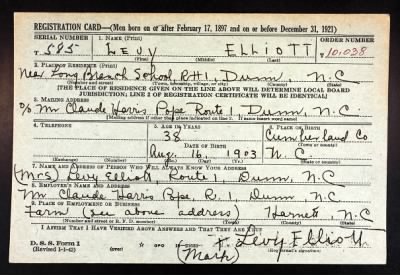 REGISTRATION CARD—(Men born on or after February 17, 1897 and on or before December 31, 1921)
SERIAL NUMBER 1. NAME (Print) ORDER NUMBER
T 585 LEVY ELLIOTT 10,038
(First) (Middle) (Last)
2. PLACE OF RESIDENCE (Print)
Near Long Branch School Rt 1, Dunn, N.C
(Number and street) (Town, township, village, or city) (County) (State)
[THE PLACE OF RESIDENCE GIVEN ON THE LINE ABOVE WILL DETERMINE LOCAL BOARD
JURISDICTION; LINE 2 OF REGISTRATION CERTIFICATE WILL BE IDENTICAL]
3. MAILING ADDRESS
c/o Mr Claude Harris Pope Route 1, Dunn, N.C.
[Mailing address if other than place indicated on line 2. If same insert word same]
4. TELEPHONE 5. AGE IN YEARS 6. PLACE OF BIRTH
38 Cumberland Co
DATE OF BIRTH (Town or county)
Aug. 16, 1903 N.C
(Exchange) (Number) (Mo.) (Day) (Yr.) (State or country)
7. NAME AND ADDRESS OF PERSON WHO WILL ALWAYS KNOW YOUR ADDRESS
(Mrs) Levy Elliott Route 1, Dunn, N.C
8. EMPLOYER'S NAME AND ADDRESS
Mr. Claude Harris Pope, R. 1, Dunn, N.C
9. PLACE OF EMPLOYMENT OR BUSINESS
Farm (see above address) Harnett, N.C
(Number and street or R. F. D. number) (Town) (County) (State)
I AFFIRM THAT I HAVE VERIFIED ABOVE ANSWERS AND THAT THEY ARE TRUE.
D. S. S. Form 1
(Revised 1-1-42) (over) GPO Levy Elliott
(Mark)